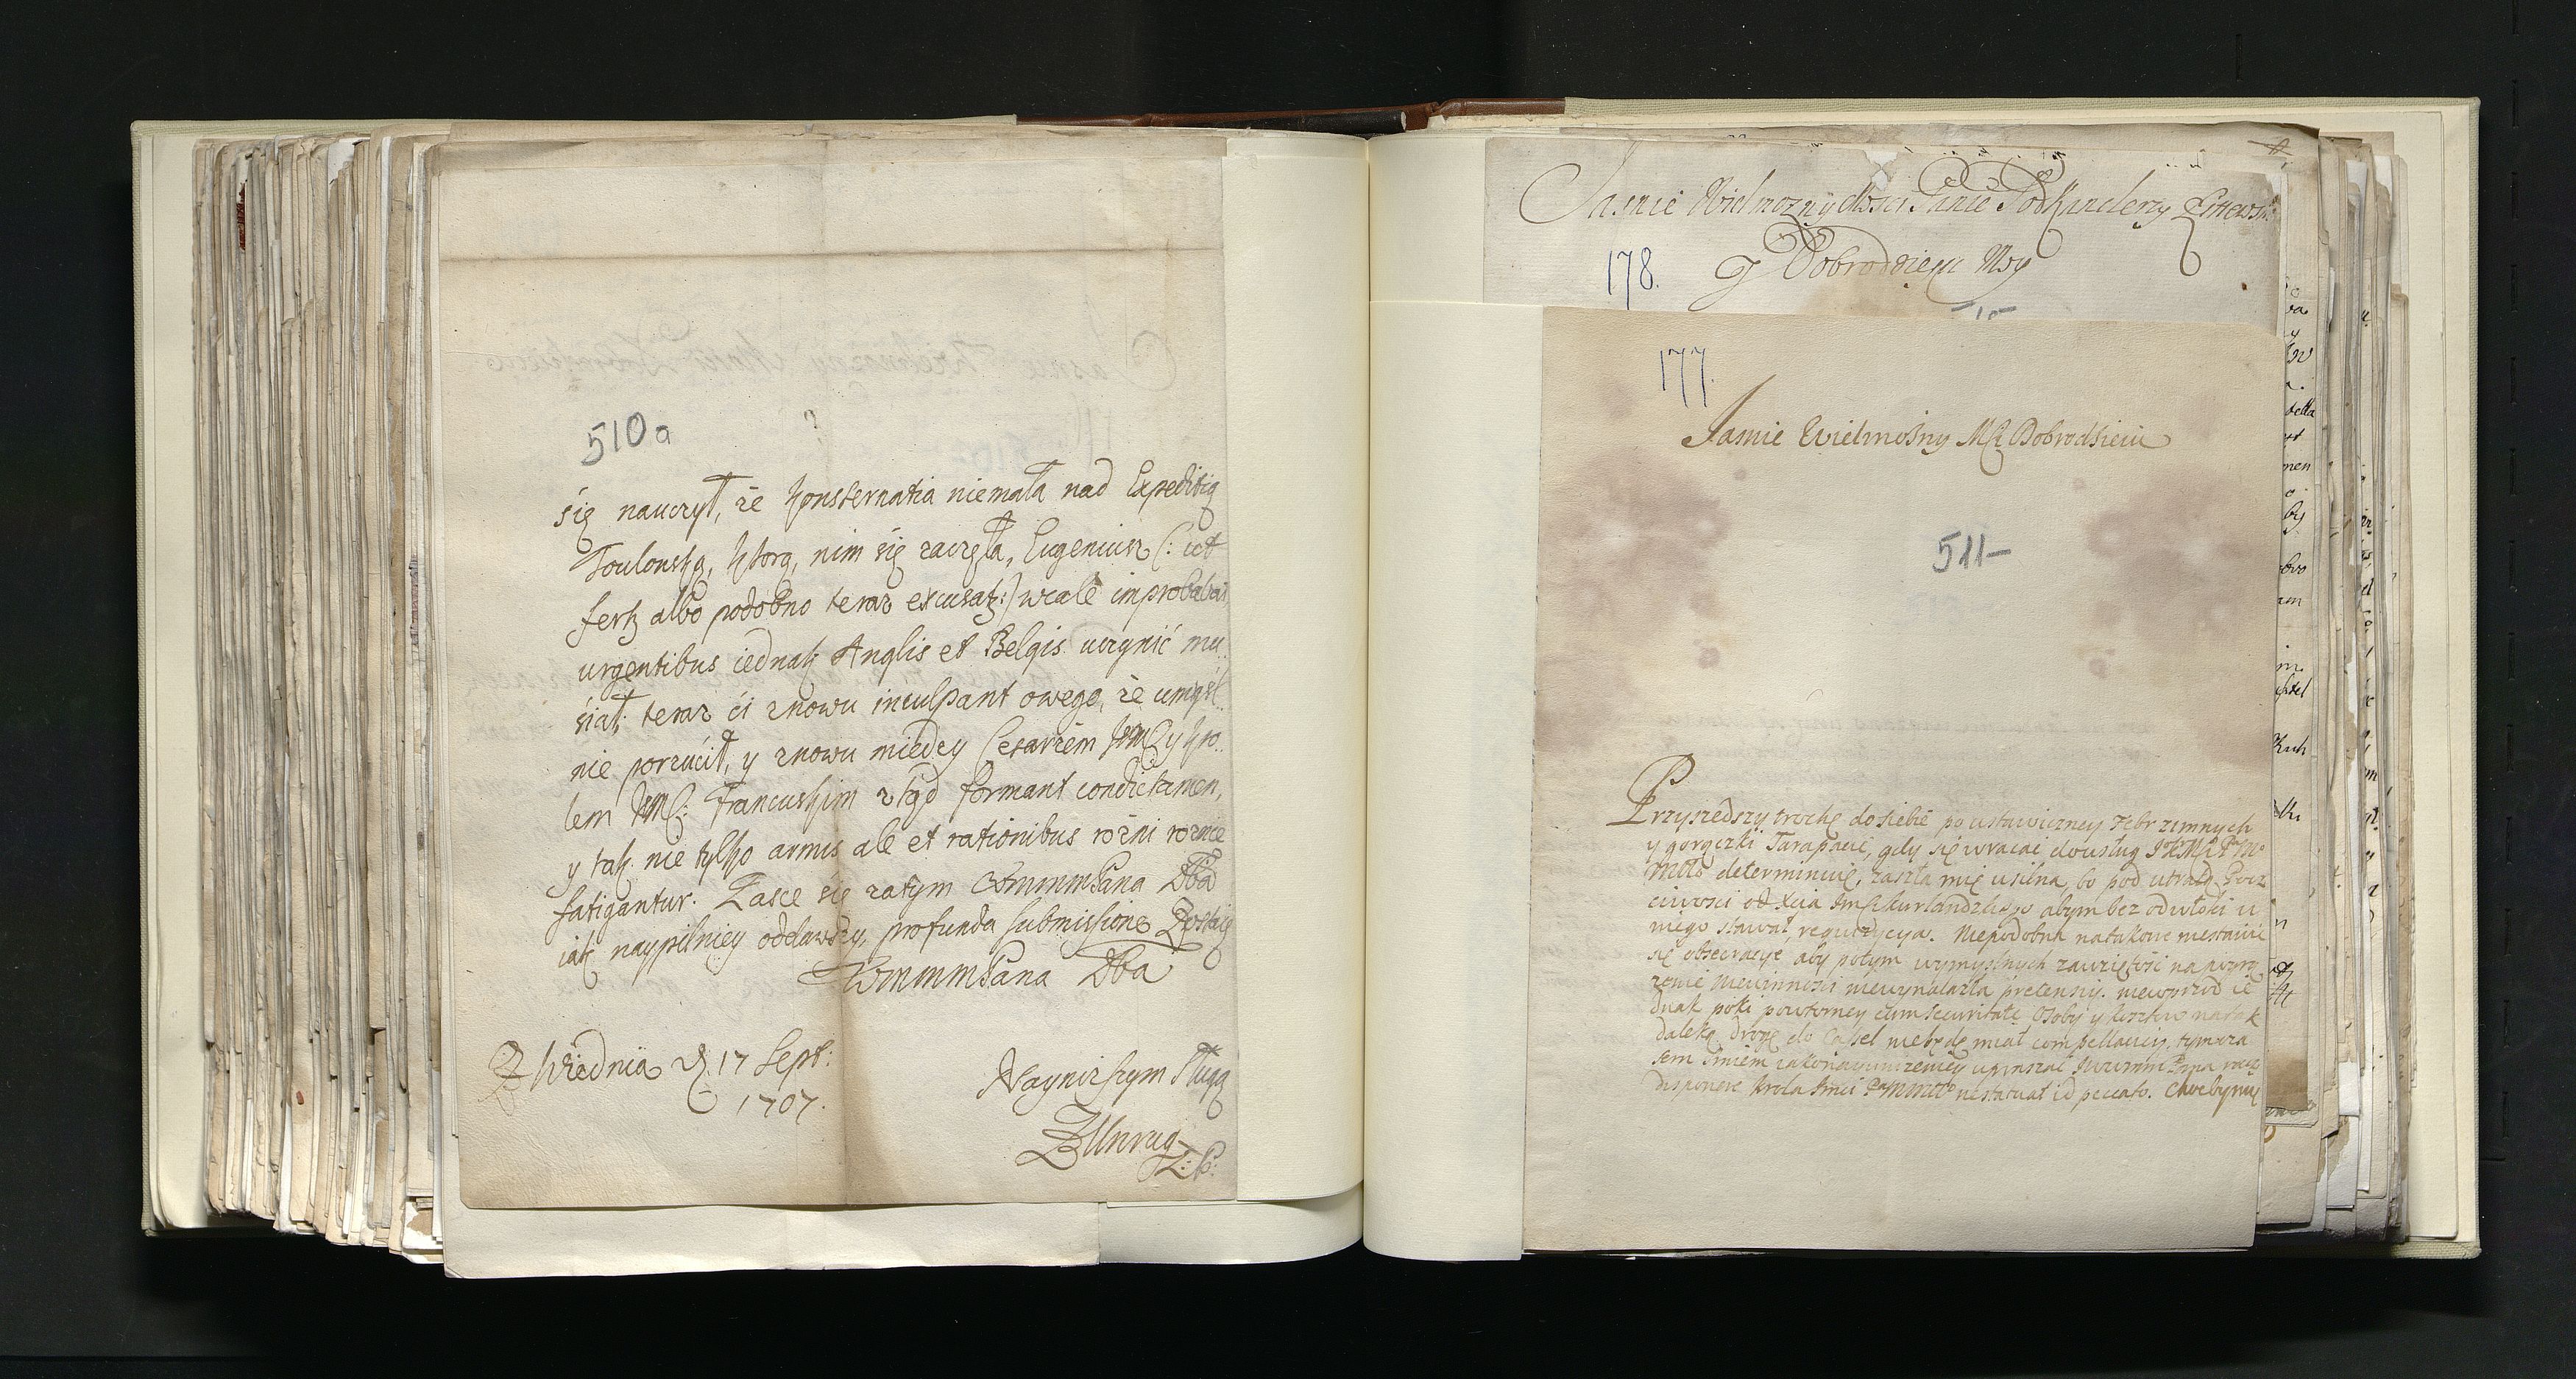 510a
się nauczył, że konsternatia niemała nad Expeditią
Toulonską, ktorą, nim się zaczęła, Eugeniusz (: ut
fertz albo podobno teraz excusatz:) wcale improbabat,
urgentibus iednak Anglis et Belgis uczynić mu
siał; teraz ći znowu inculpant owego, że umyśl
nie porzućił, y znowu miedzy Cesarzem JMC y kro
lem JMC: Francuskim ztąd formant condictamen,
y tak nie tylko armis ale et rationibus rożni rożnie
fatigantur. Łasce się zatym WMMMPana Dba
iak naypilniey oddawszy, profunda submissione Zostaię
WMMMPana Dba
Z Wiednia d. 17 Sept:
1707.
Nayniższym Sługą
ZUnrug
Jasnie Wielmozny Mści Panie PodKanclerzy Littewski
178.
y Dobrodzieju Moy
177.
Jasnie Wielmożny Mći Dobrodzieiu
511-
Przyszedszy trochę do siebie po ustawiczney Febr zimnych
y gorączki Tarapacie, gdy się wracac do usług
determinuię, zaszła mię usilna, bo pod utratą Pocz
ciwosci od Xcia Jmći Kurlandzkiego abym bez odwłoki u
niego stawał, requizycya. Niepodobna na takowe niestawic
się obsecracye, aby potym wymyslnych zawziętośći na pogrą
zenie Niewinnosci niewynalazła pretensij. niewprzod ie
dnak poki powtorney cum securitate Osoby y kosztow na tak
daleką drogę do Cassel niebędę miał compellacij, tymcza
sem
disponere Krola Jmći ne statuat id peccato. Choćbym się